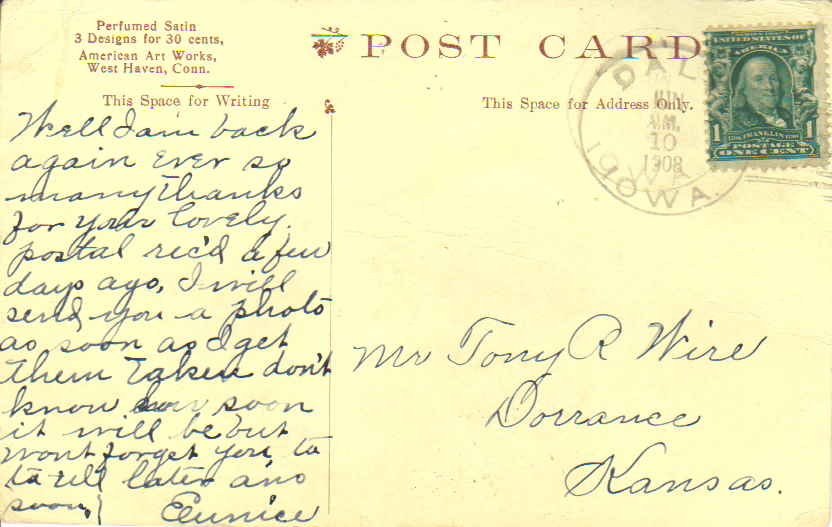 Perfumed Satin
3 Designs for 30 cents,
American Art Works,
West Haven, Conn.
POST CARD
This Space for Writing
This Space for Address Only.
DAL
JUN
A.M.
10
1908
IOWA
UNITED STATES OF
AMERICA
1 FRANKLIN 1
POSTAGE
ONE CENT
Well I am back
again Ever so
many thanks
for your lovely
postal rec'd a few
days ago, I will
send you a photo
as soon as I get
them taken don't
know how soon
it will be but
wont forget you, ta
ta till later ans
soon. Eunice
Mr Tony R Wire
Dorrance
Kansas.